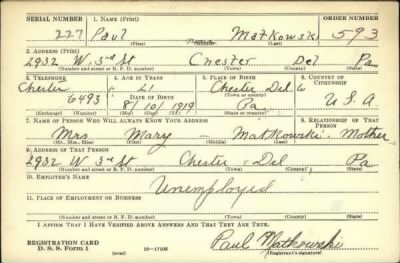 SERIAL NUMBER 1. NAME (Print) ORDER NUMBER
227 Paul Matkowski 593
(First) (Last)
2. ADDRESS (Print)
2932 W. 3rd St Chester Del Pa
(Number and street or R. F. D. number) (Town) (County) (State)
3. TELEPHONE 4. AGE IN YEARS 5. PLACE OF BIRTH 6. COUNTRY OF CITIZENSHIP
Chester 21 Chester Del
DATE OF BIRTH (Town or county)
6493 8/10/1919 Pa. U.S.A
(Exchange) (Number) (Mo.) (Day) (Yr.) (State or country)
7. NAME OF PERSON WHO WILL ALWAYS KNOW YOUR ADDRESS 8. RELATIONSHIP OF THAT PERSON
Mrs Mary — Matkowski. Mother
(Mr., Mrs., Miss) (First) (Middle) (Last)
9. ADDRESS OF THAT PERSON
2932 W 3rd St Chester Del Pa
(Number and street or R. F. D. number) (Town) (County) (State)
10. EMPLOYER'S NAME
Unemployed
11. PLACE OF EMPLOYMENT OR BUSINESS
(Number and street or R. F. D. number) (Town) (County) (State)
I AFFIRM THAT I HAVE VERIFIED ABOVE ANSWERS AND THAT THEY ARE TRUE.
REGISTRATION CARD
D. S. S. Form 1 (over) 16—17105 Paul Matkowski
(Registrant's signature)